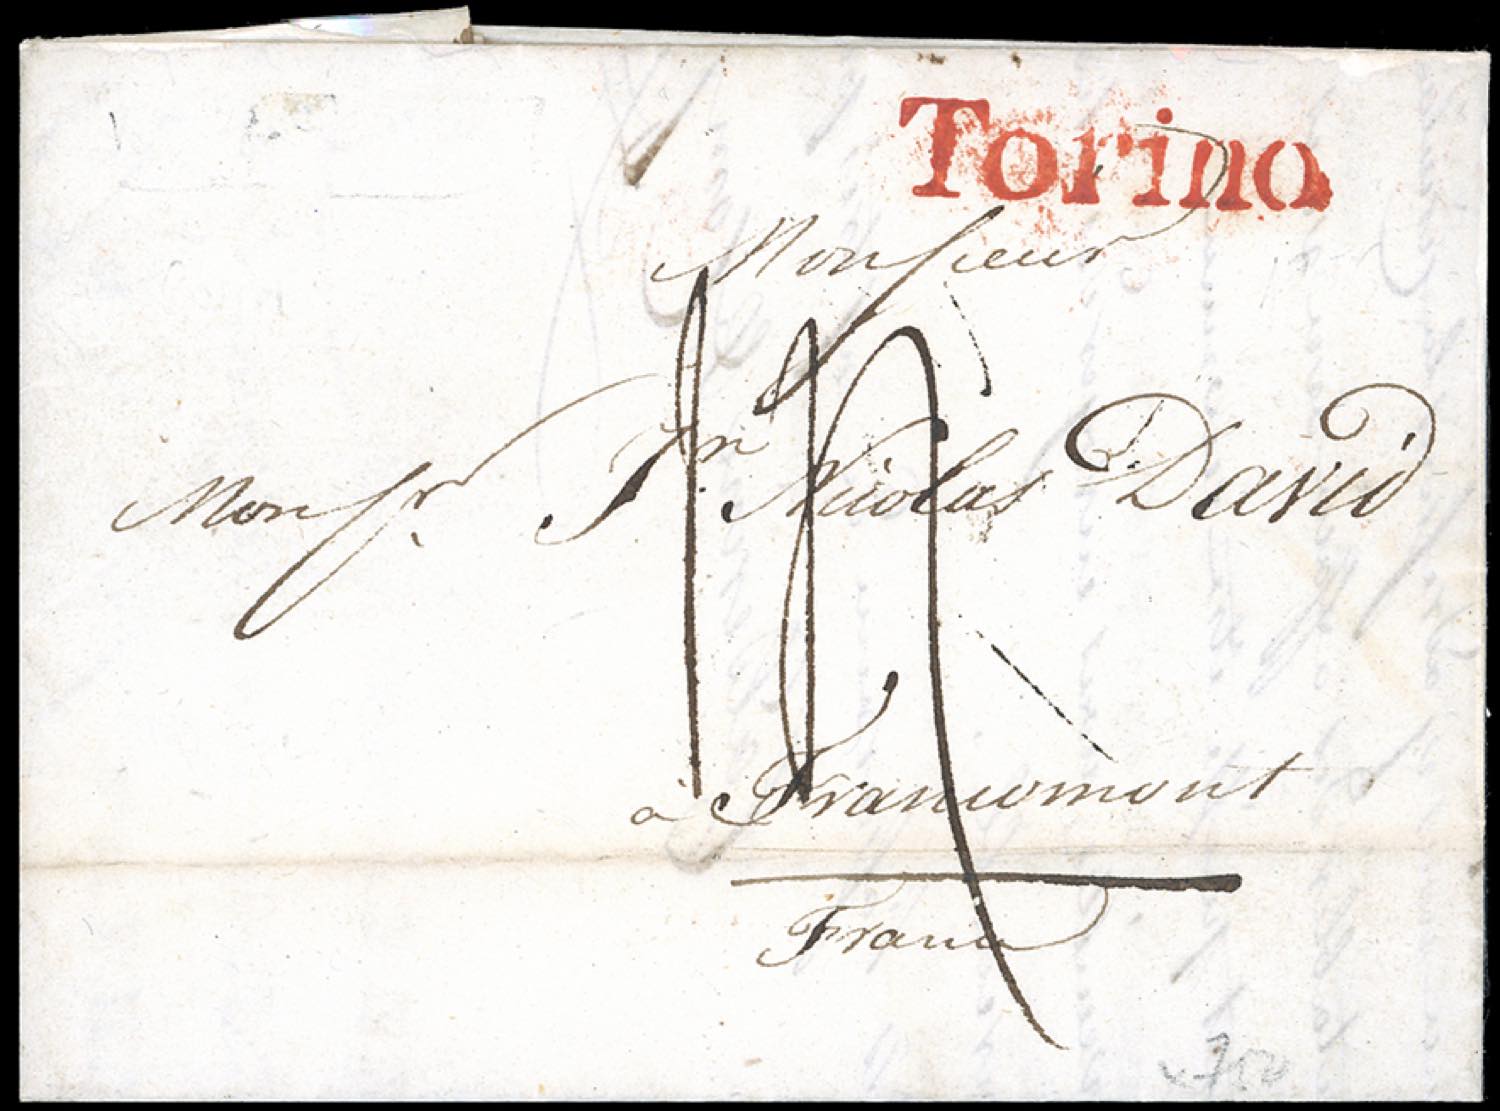 Torino
Monsieur
Monsr. Jn. Nicolas David
à Francomont
France